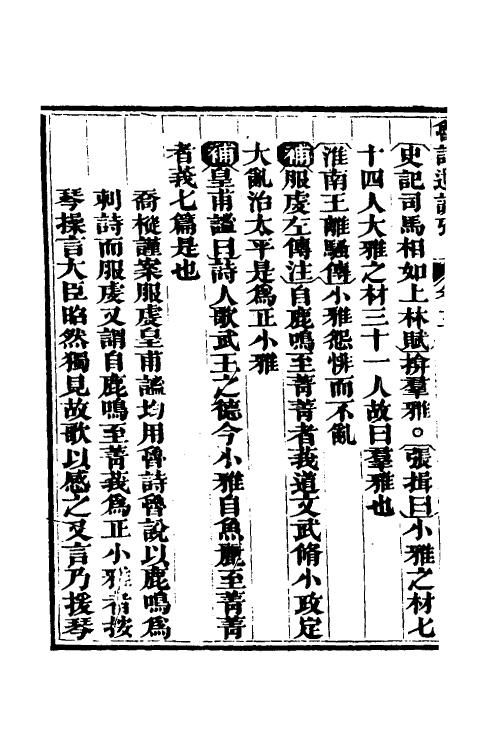 魯詩遺說攷
史記司馬相如上林賦揜羣雅。張揖曰小雅之材七
十四人大雅之材三十一人故曰羣雅也
淮南王離騷傳小雅怨悱而不亂
補服虔左傳注自鹿鳴至菁菁者莪道文武脩小政定
大亂治太平是爲正小雅
補皇甫謐曰詩人歌武王之德今小雅自魚麗至菁菁
者莪七篇是也
喬樅謹案服虔皇甫謐均用魯詩魯說以鹿鳴爲
刺詩而服虔又謂自鹿鳴至菁莪爲正小雅者按
琴操言大臣昭然獨見故歌以感之又言乃援琴